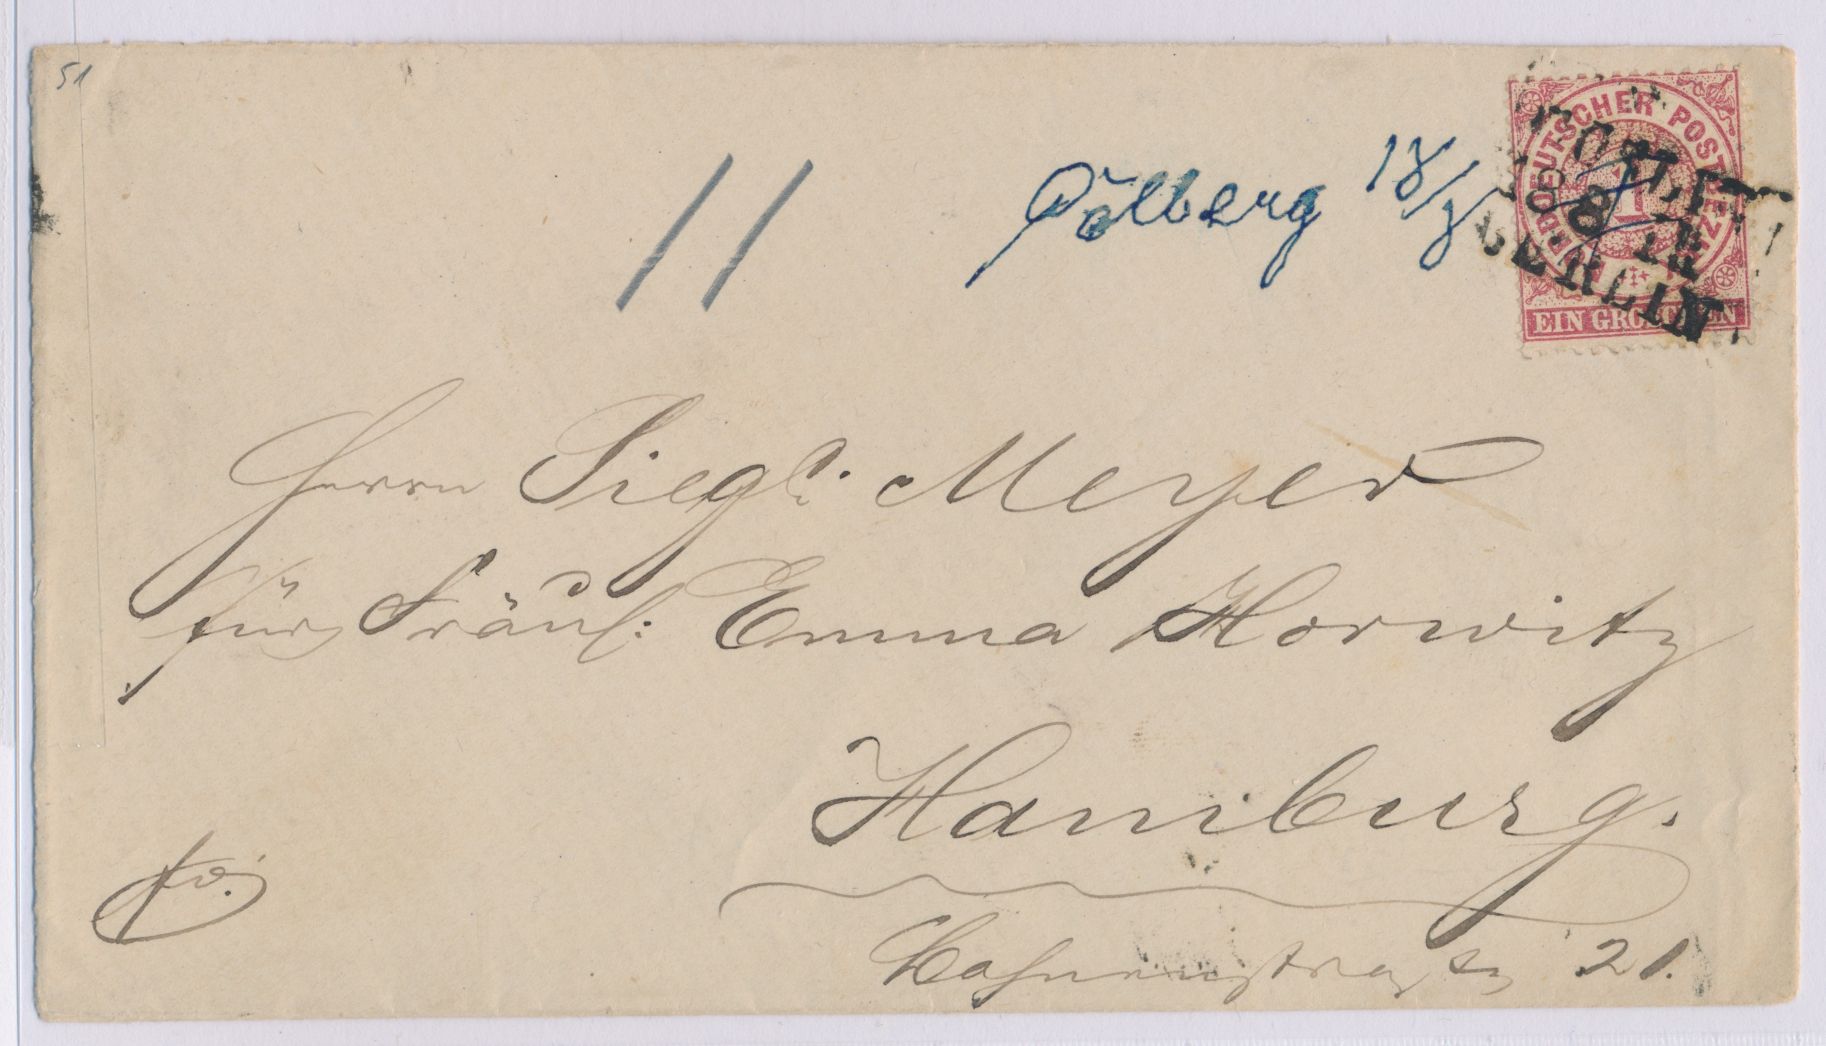 51
Cölberg 18/8
NORDDEUTSCHER POSTBEZIRK
1
EIN GROSCHEN
18 8 II
BERLIN
Herrn Siegf. Meyer
für Fräul: Emma Horwitz
Hamburg.
fr.
21.